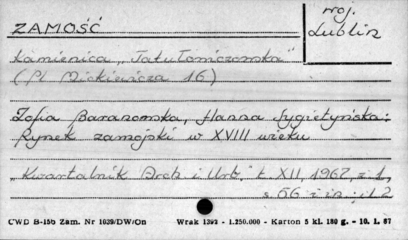 ZAMOŚĆ
woj. Lublin
kamienica „Tatułomiczowska"
(Pl. Mickiewicza 16)
Zofia Baranowska, Hanna Sygietyńska:
Rynek zamojski w XVIII wieku
„Kwartalnik Arch. i Urb." t. XII, 1967, z. 1,
s. 66 i in., il. 2
CWD B-156 Zam. Nr 1039/DW/On Wrak 1392 - 1.250.000 - Karton 5 kl. 180 g. - 10. 1. 67